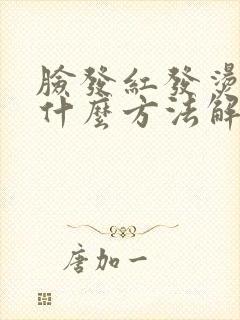 臉發紅發燙
什麼方法解
唐加一